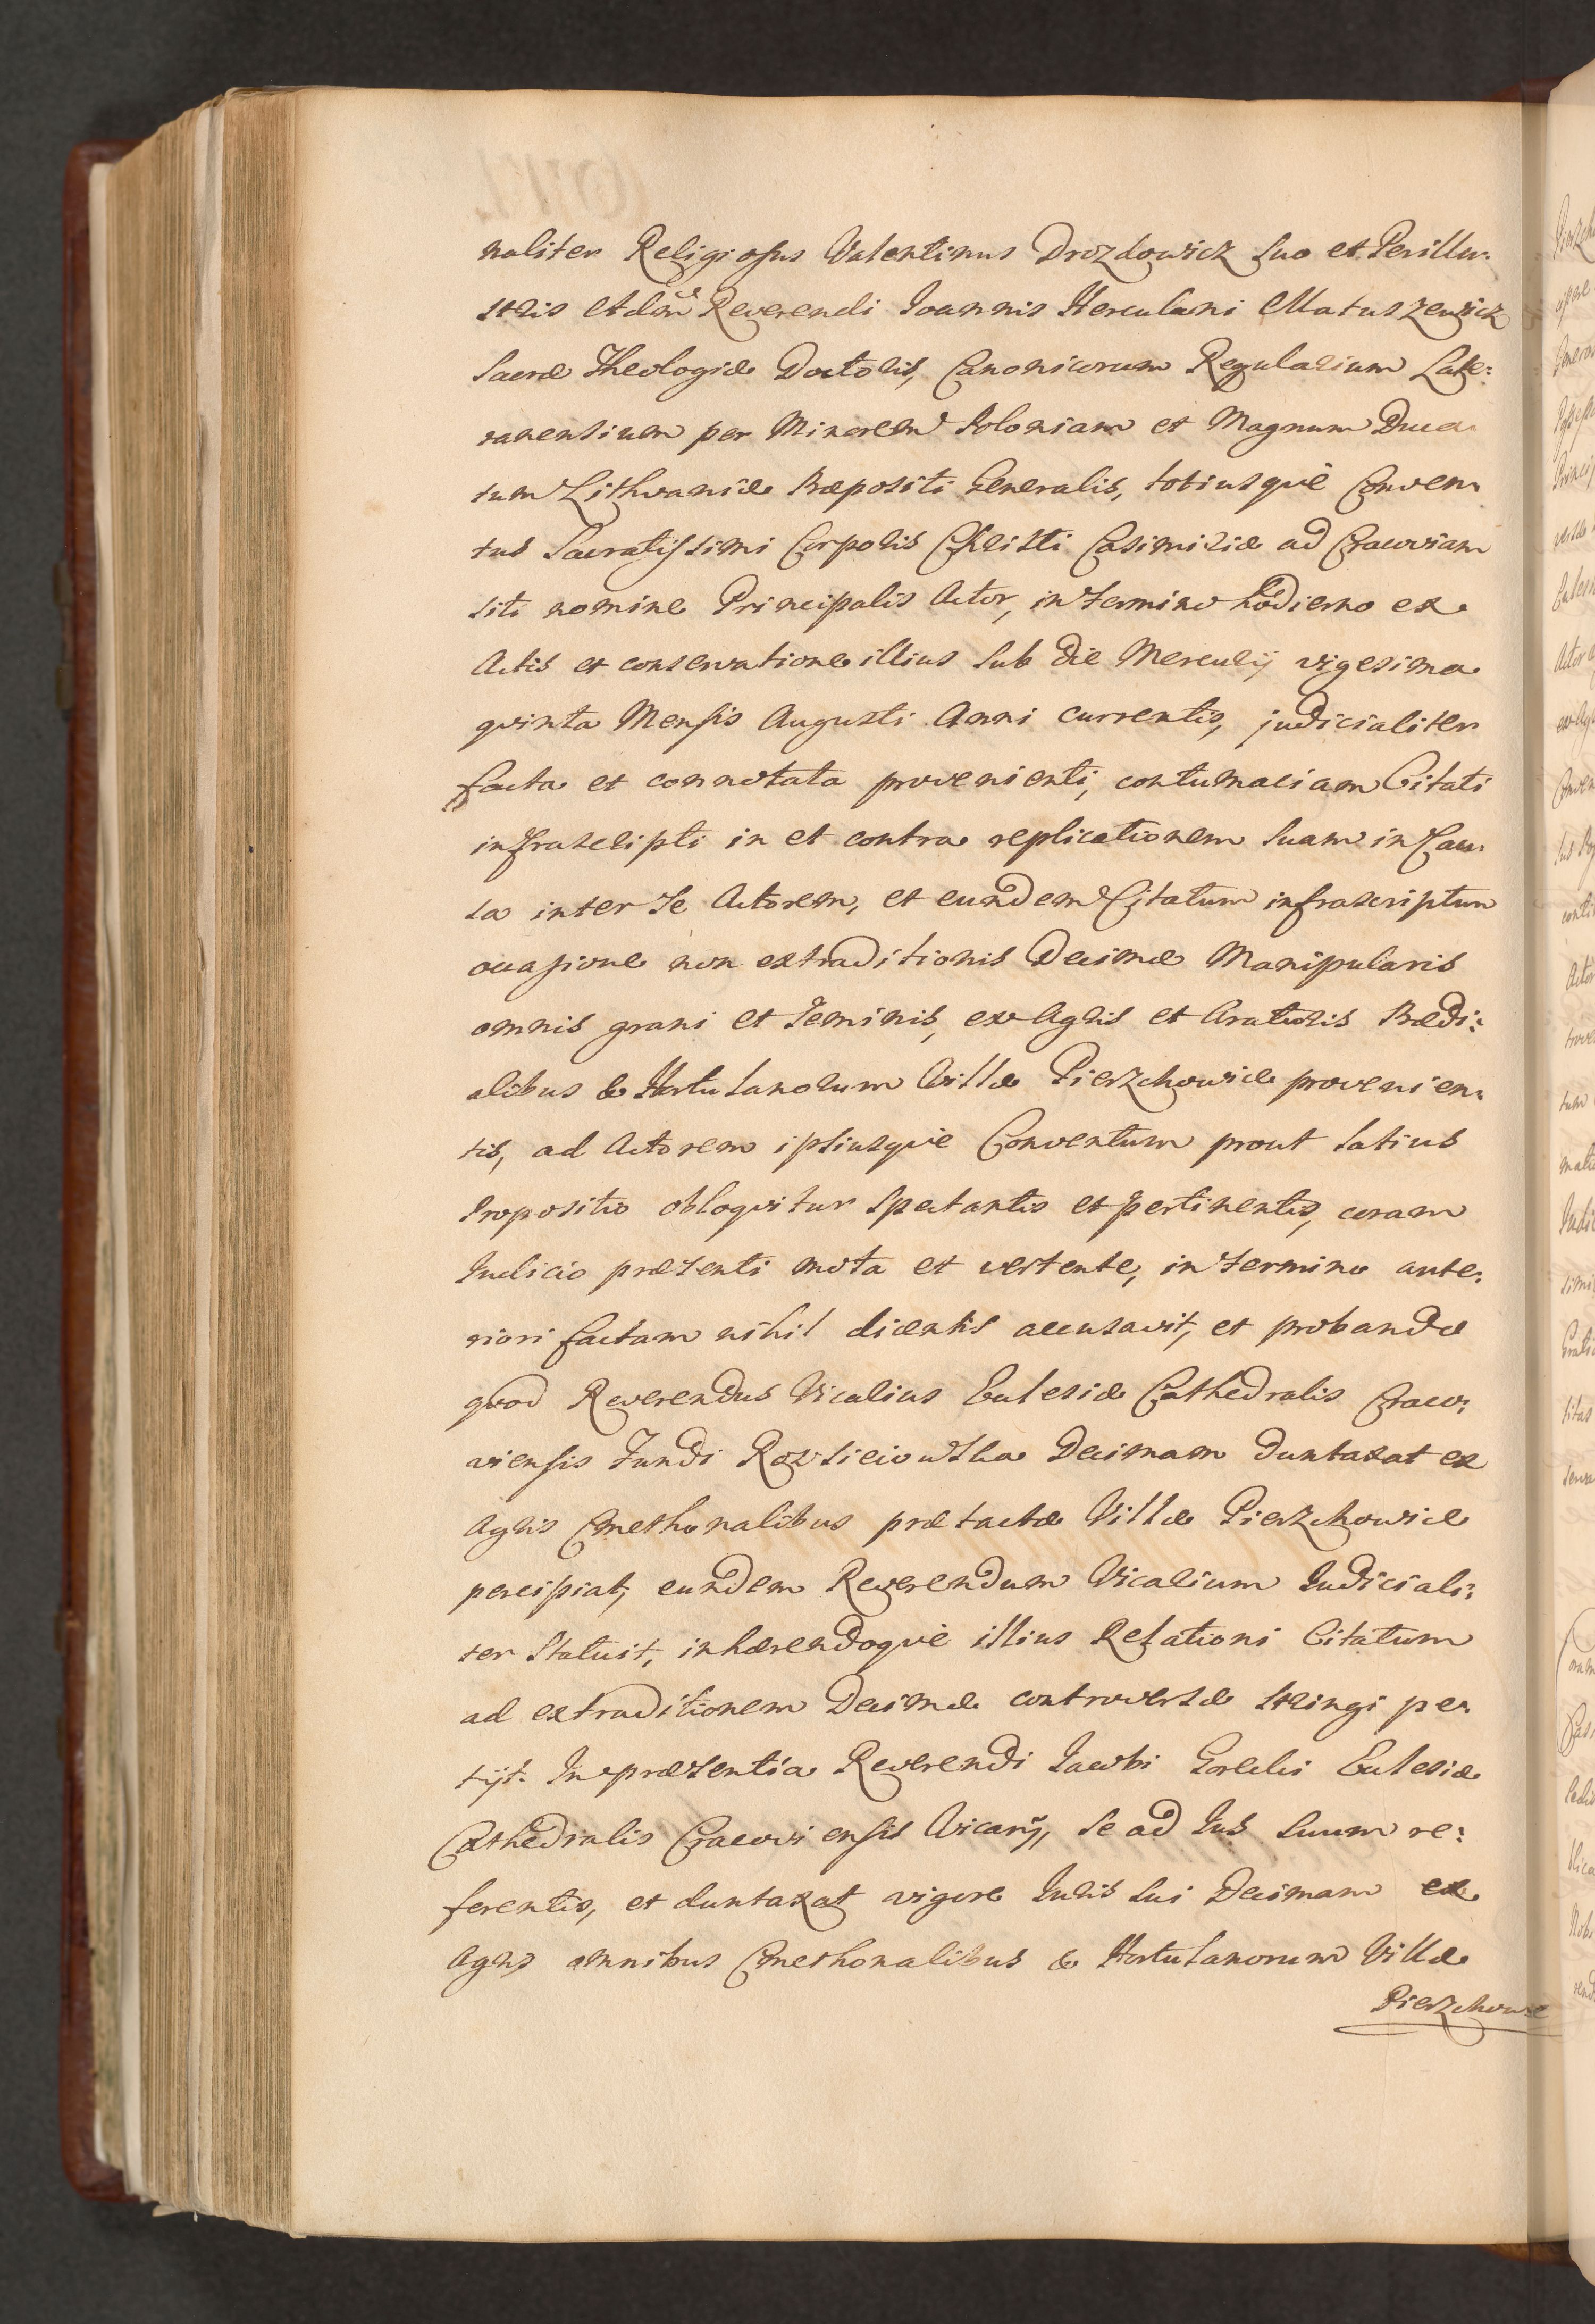 naliter Religiosus Valentinus Drozdowicz suo et Perillu:
stris et Adm̃ Reverendi Joannis Herculani Matuszewicz
Sacræ Theologiæ Doctoris, Canonicorum Regularium Late:
ranensium per Minorem Poloniam et Magnum Duca
tum Lithvaniæ Præpositi Generalis, totiusqvè Conven:
tus Sacratissimi Corporis Christi Casimiriæ ad Cracoviam
siti nomine Principalis Actor, in termino hodierno ex
Actis et conservatione illius sub die Mercurij vigesima
qvinta Mensis Augusti Anni currentis, judicialiter
facta et connotata provenienti, contumaciam Citati
infrascripti in et contra replicationem suam in Cau:
sa inter se Actorem, et eundem Citatum infrascriptum
occasione non extraditionis Decimæ Manipularis
omnis grani et seminis, ex Agris et Araturis Prædi:
alibus & Hortulanorum Villæ Pierzchowice provenien:
tis, ad Actorem ipsiusqvè Conventum prout latius
Propositio obloqvitur spectantis et pertinentis, coram
Judicio præsenti mota et vertente, in termino ante:
riori factam nihil dicentis accusavit, et probando
qvod Reverendus Vicarius Ecclesiæ Cathedralis Craco:
viensis Fundi Decimam duntaxat ex
Agris Cmethonalibus prætactæ Villæ Pierzchowice
percipiat, eundem Reverendum Vicarium Judiciali:
ter Statuit, inhærendoqvè illius Relationi Citatum
ad extraditionem Decimæ controversæ stringi pe:
tijt. In præsentia Reverendi Jacobi Ecclesiæ
Cathedralis Cracoviensis Vicarij, se ad Jus suum re:
ferentis, et duntaxat vigore Juris sui Decimam ex
Agris omnibus Cmethonalibus & Hortulanorum Villæ
Pierzchowice